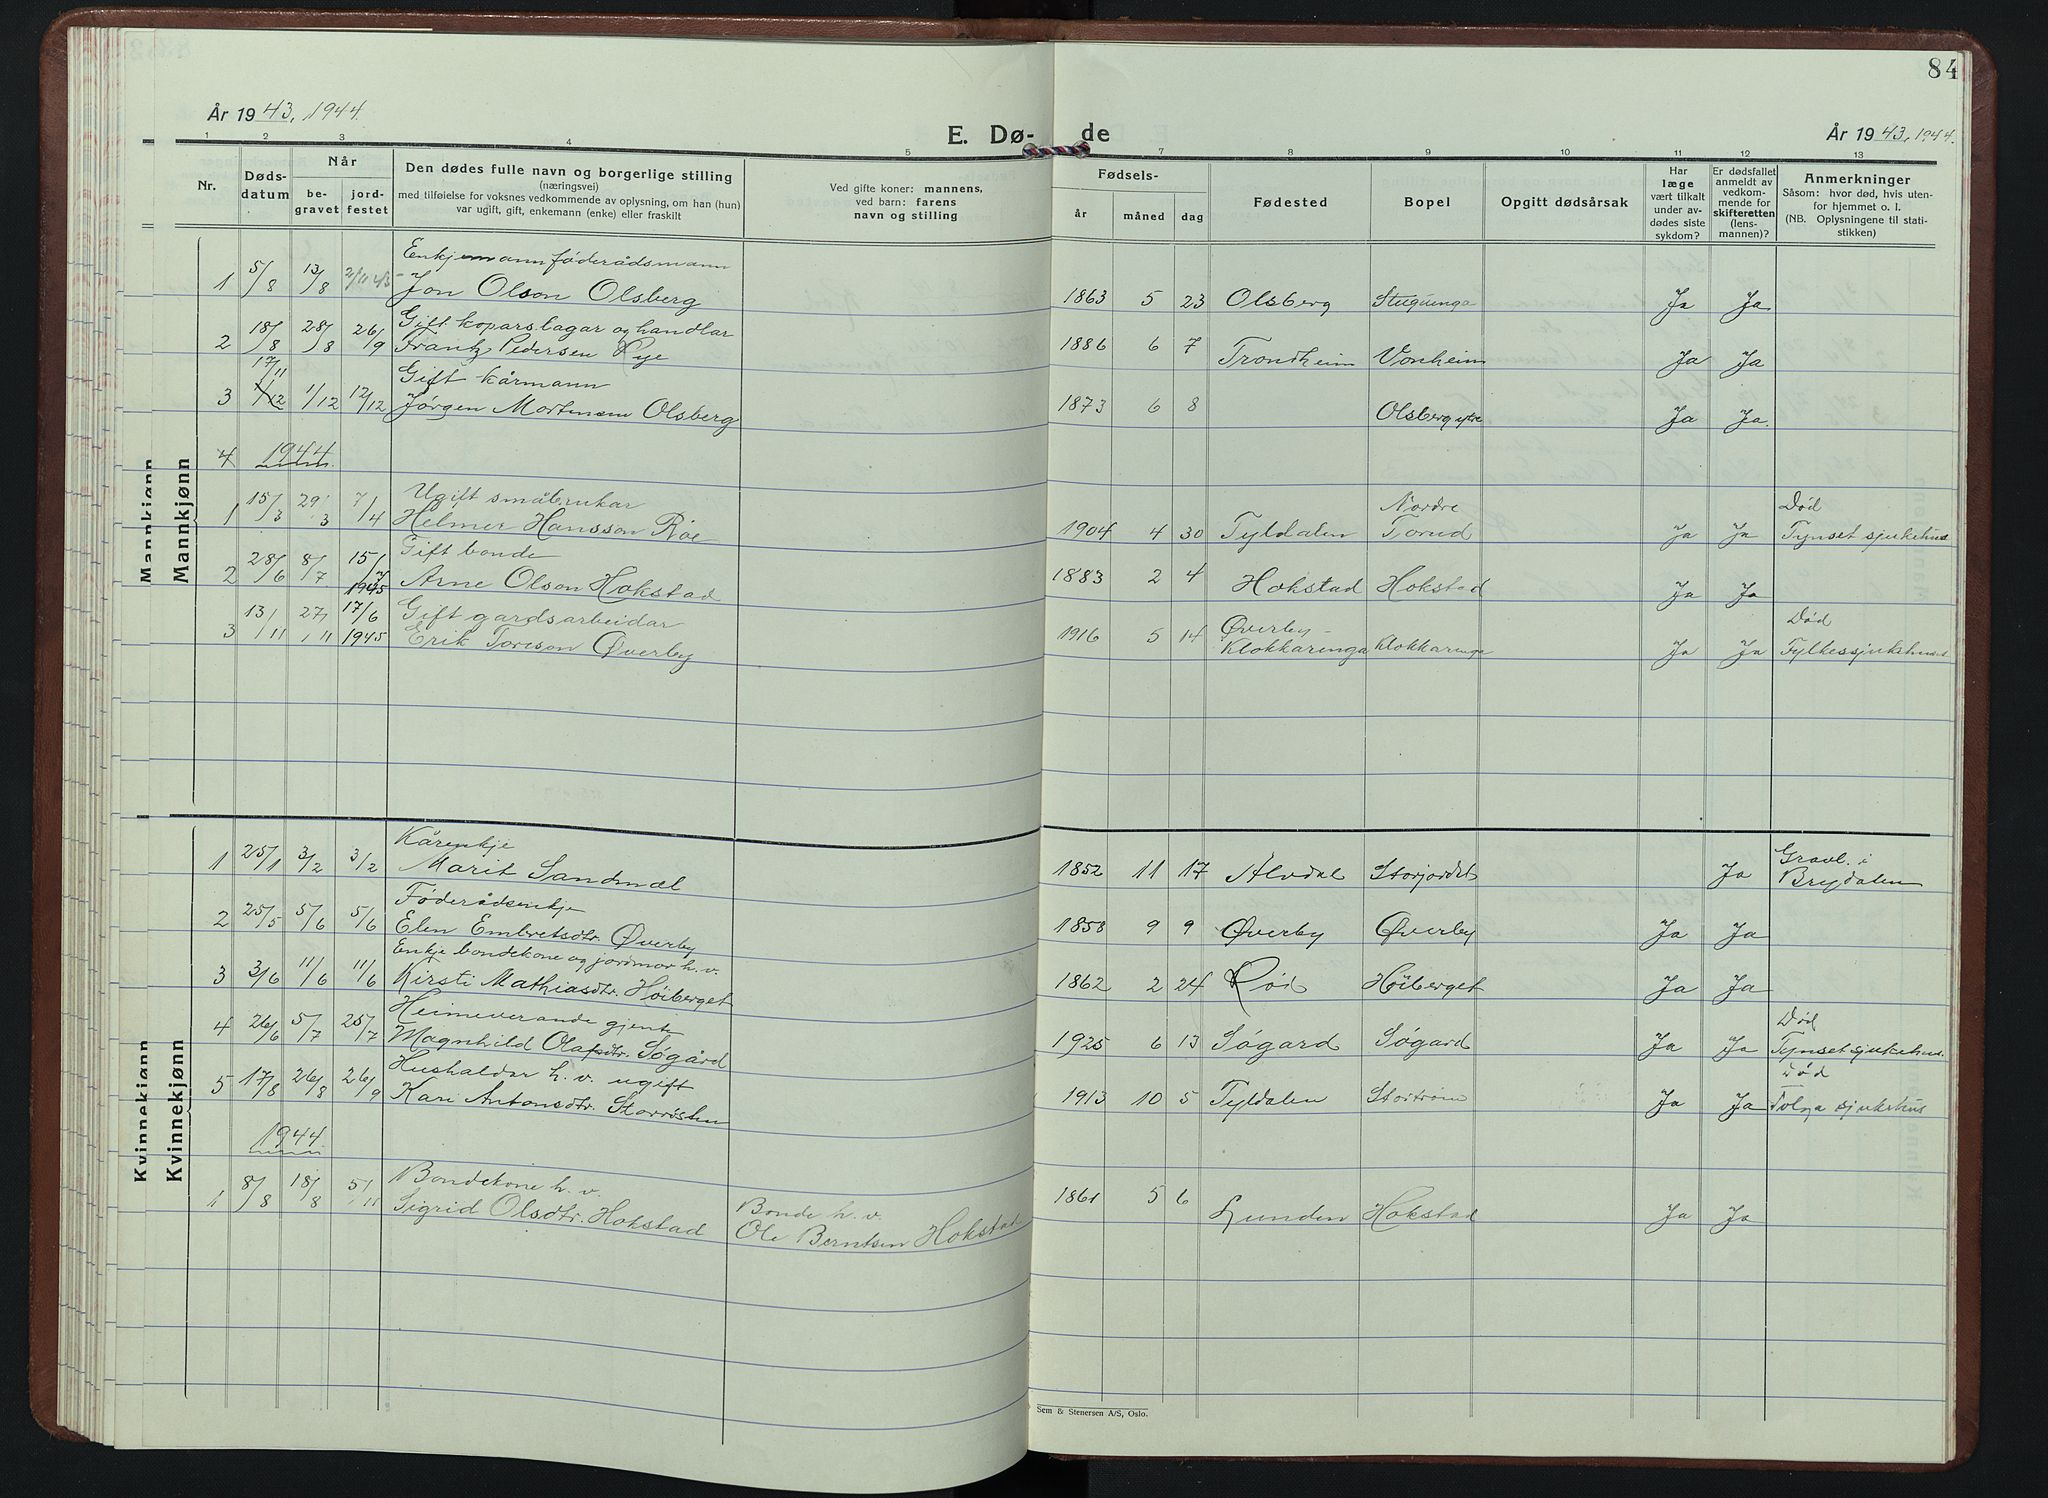 84
År 1943, 1944.
E. Dø-
de
År 1943, 1944.
1 2 3 4 5 7 8 9 10 11 12 13
Nr.
Døds-
datum
Når
be-
gravet
jord-
festet
Den dødes fulle navn og borgerlige stilling
(næringsvei)
med tilføielse for voksnes vedkommende av oplysning, om han (hun)
var ugift, gift, enkemann (enke) eller fraskilt
Ved gifte koner: mannens,
ved barn: farens
navn og stilling
Fødsels-
år måned dag
Fødested
Bopel
Opgitt dødsårsak
Har
læge
vært tilkalt
under av-
dødes siste
sykdom?
Er dødsfallet
anmeldt av
vedkom-
mende for
skifteretten
(lens-
mannen)?
Anmerkninger
Såsom: hvor død, hvis uten-
for hjemmet o. l.
(NB. Oplysningene til stati-
stikken)
Mannkjønn
Mannkjønn
Enkjemann føderådsmann
1 5/8 13/8 2/11 43 Jon Olson Olsberg 1863 5 23 Olsberg Stuguenga Ja Ja
Gift koparslagar og handlar
2 18/8 28/8 26/9 Frantz Pedersen Rye 1886 6 7 Trondheim Vonheim Ja Ja
17/11 Gift kårmann
3 1/12 1/12 12/12 Jørgen Mortensen Olsberg 1873 6 8 Olsberg ytre Ja Ja.
4 1944
Ugift småbrukar Nordre Død
1 15/3 29/3 7/4 Helmer Hansson Røe 1904 4 30 Tyldalen Torud Ja Ja Tynset sjukehus
Gift bonde
2 28/6 8/7 15/7 Arne Olson Hokstad 1883 2 4 Hokstad Hokstad Ja Ja
1945
Gift gardsarbeidar Øverby- Død
3 13/11 27/11 17/6 1945 Erik Toreson Øverby 1916 5 14 Klokkarenga Klokkarenga Ja Ja Fylkessjukehuset
Kvinnekjønn
Kvinnekjønn
Kårenkje Gravl. i
1 25/1 3/2 3/2 Marit Sandmæl 1852 11 17 Alvdal Storjordet Ja Brydalen
Føderådsenkje
2 25/5 5/6 5/6 Elen Embretsdtr. Øverby 1858 9 9 Øverby Øverby Ja Ja
Enkje bondekone og jordmor h. v.
3 3/6 11/6 11/6 Kirsti Mathiasdtr. Høiberget 1862 2 24 Røe Høiberget Ja Ja
Heimeverande gjente Død
4 26/6 5/7 25/7 Magnhild Olafsdtr. Søgård 1925 6 13 Søgard Søgard Ja Ja Tynset sjukehus.
Hushaldar h. v. ugift Død
5 17/8 26/8 26/9 Kari Antonsdtr. Storrøsten 1913 10 5 Tyldalen Ja Ja Tolga sjukehus
1944
Bondekone h. v. Bonde h. v.
1 8/8 18/8 5/11 Sigrid Olsdtr. Hokstad Ole Berntsen Hokstad 1861 5 6 Lunden Hokstad Ja Ja
Sem & Stenersen A/S, Oslo.